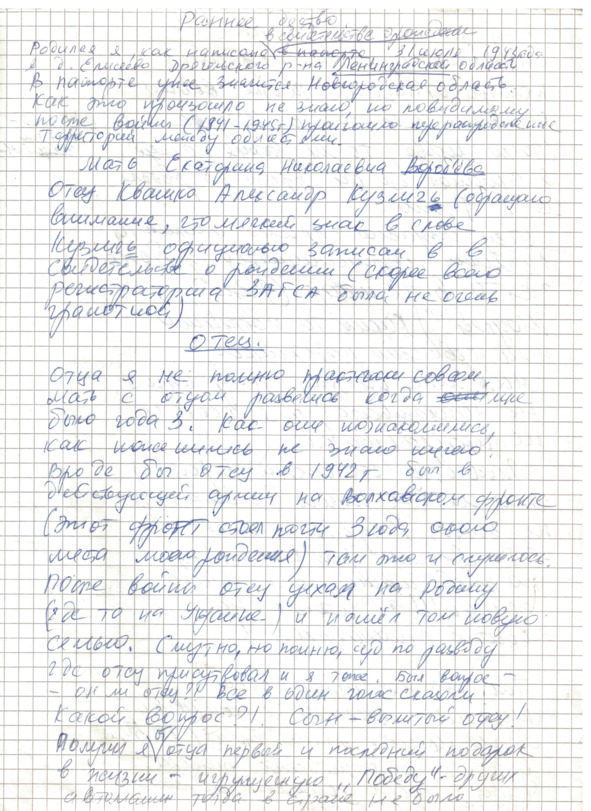 Раннее детство.
в свидетельстве о рождении
Родился я, как написано в паспорте 31 июля 1943 года
в д. Ерисево Дрегельского р-на Ленинградской области
В паспорте уже значится Новгородская область.
Как это произошло не знаю, но повидимому
после войны (1941-1945г) произошло перераспределение
территорий между областями.
Мать Екатерина Николаевна Воробьева
Отец Квашко Александр Кузмичь (обращаю
внимание, что мягкий знак в слове
Кузмичь официально записан в в
свидетельстве о рождении (скорее всего
регистраторша ЗАГСА была не очень
грамотной)
Отец.
Отца я не помню практически совсем.
Мать с отцом развелись когда мне
было года 3. Как они познакомились,
как поженились не знаю ничего.
Вроде бы отец в 1942г был в
действующей армии на Волховском фронте
(Этот фронт стоял почти 3 года около
места моего рождения) там это и случилось.
После войны отец уехал на Родину
(где то на Украине-) и нашёл там новую
семью. Смутно, но помню, суд по разводу
где отец присутствовал и я тоже. Был вопрос-
- он ли отец?! Все в один голос сказали
Какой вопрос?!. Сын - вылитый отец!
Получил я от отца первый и последний подарок
в жизни - игрушечную "Победу" - других
автомашин тогда в стране не было